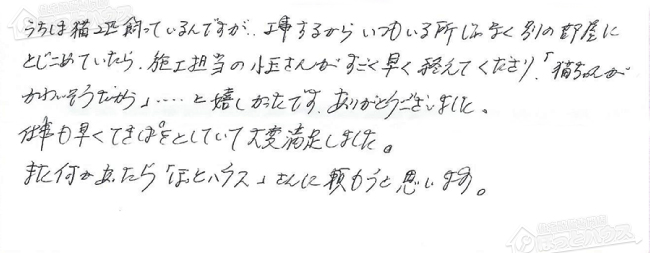 うちは猫2匹飼っているんですが、工事するからいつもいる所じゃなく別の部屋に
とじこめていたら、施工担当の小玉さんがすごく早く終えてくださり、「猫ちゃんが
かわいそうだから」‥‥と嬉しかったです。ありがとうございました。
仕事も早くてきぱきとしていて大変満足しました。
また何かあったら「ほっとハウス」さんに頼もうと思います。
ほっとハウス